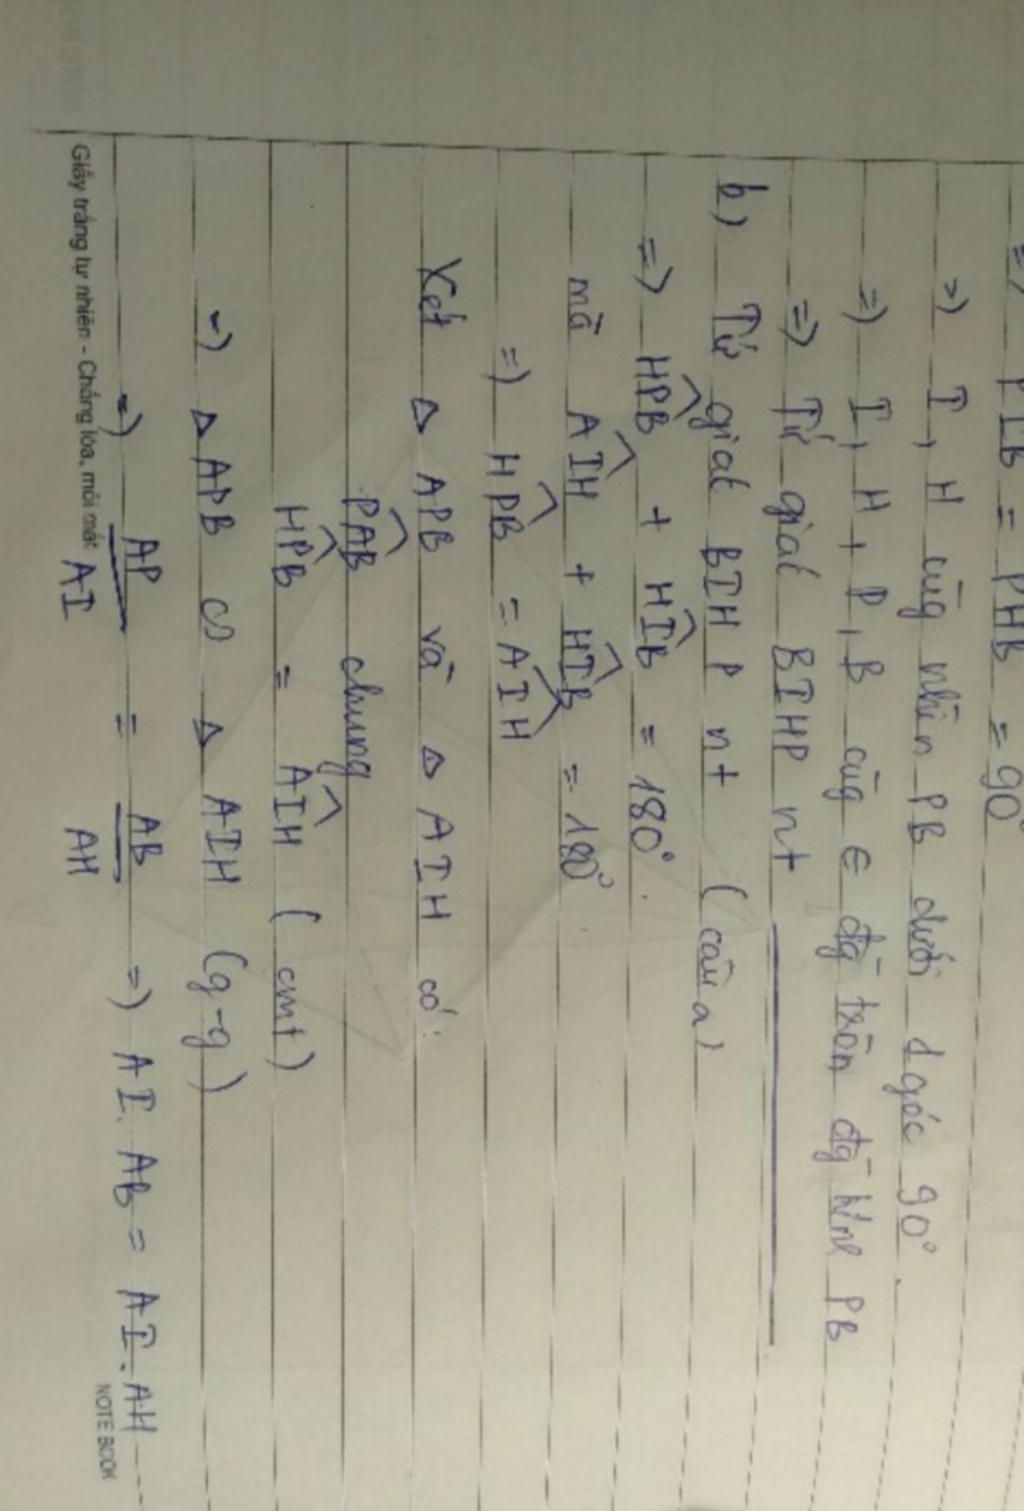 => PIB = PHB = 90°
=> I, H cùng nhìn PB dưới 1 góc 90°.
=> I, H, P, B cùng ∈ đg tròn đg kính PB
=> Tứ giác BIHP nt
b) Tứ giác BIHP nt (câu a)
=> HPB + HIB = 180°.
mà AIH + HIB = 180°
=> HPB = AIH
Xét Δ APB và Δ AIH có:
PAB chung
HPB = AIH (cmt)
=> Δ APB ∽ Δ AIH (g-g)
=> AP/AI = AB/AH => AI. AB = AI. AH
Giấy trắng tự nhiên - Chống lóa, mỏi mắt
NOTE BOOK